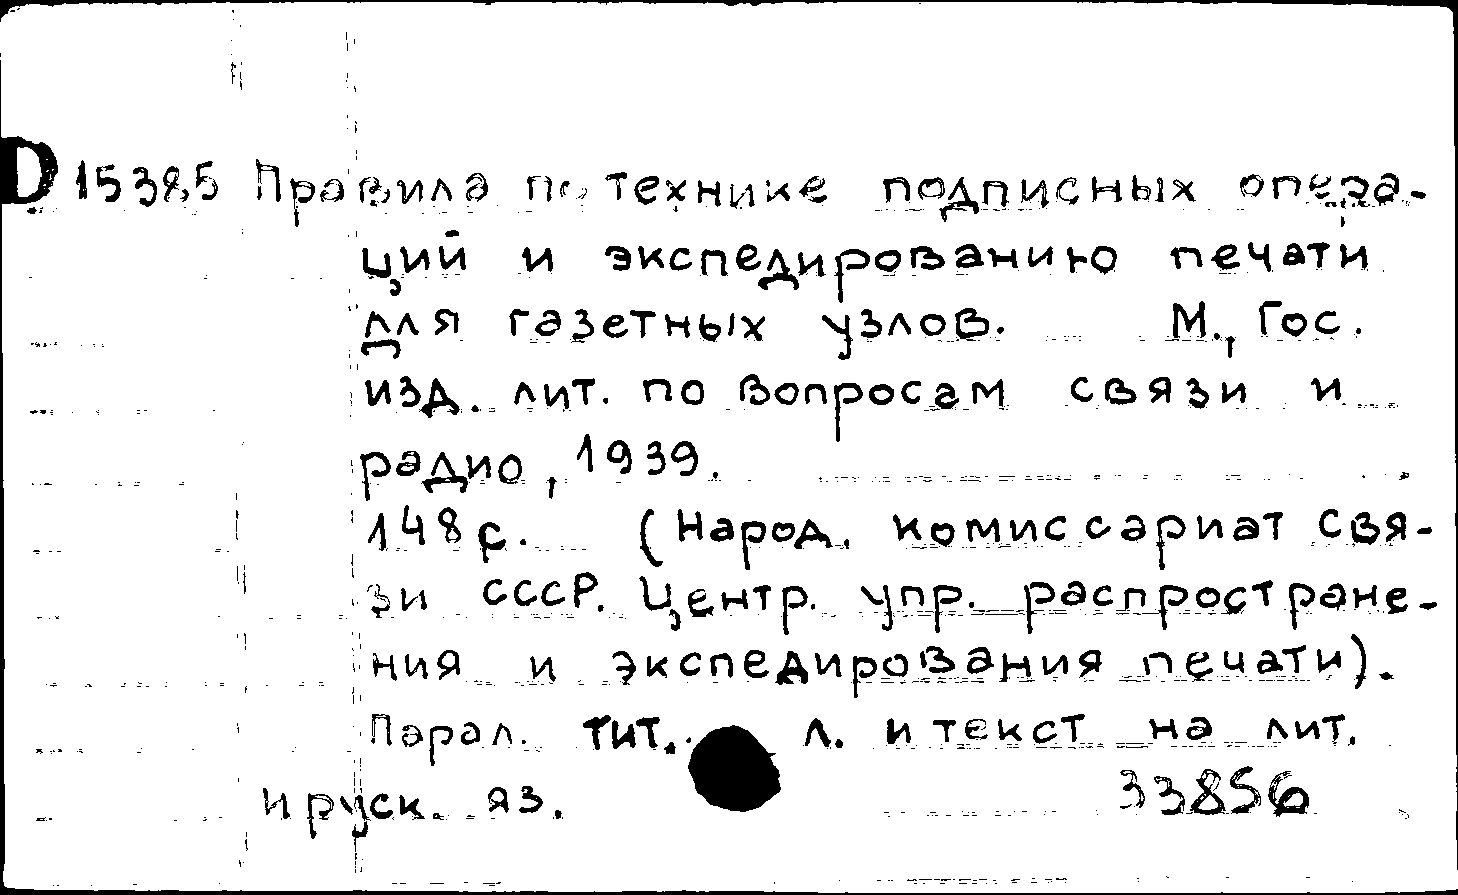 D 15385 Правила по технике подписных опера-
ций и экспедированию печати
для газетных узлов. М., Гос.
изд. лит. по вопросам связи и
радио, 1939.
148 с. (Народ. комиссариат свя-
зи СССР. Центр. упр. распростране-
ния и экспедирования печати).
Парал. тит. л. и текст на лит.
и руск. яз. 33856